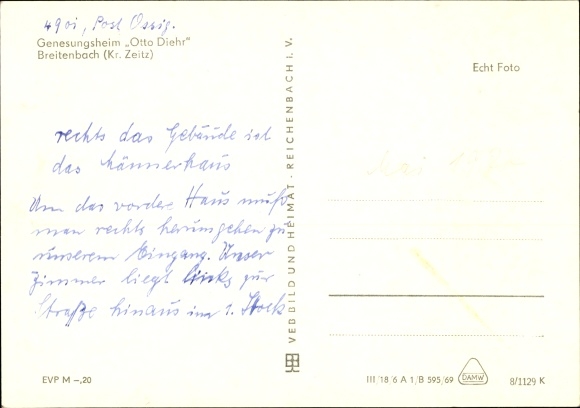 4901, Post Ossig.
Genesungsheim „Otto Diehr"
Breitenbach (Kr. Zeitz)
Echt Foto
rechts das Gebäude ist
das Männerhaus
Um das vordere Haus muß
man rechts herumgehen zu
unserem Eingang. Unser
Zimmer liegt links zur
Straße hinaus im 1. Stock
VEB BILD UND HEIMAT · REICHENBACH I. V.
EVP M –,20
III/18/6 A 1/B 595/69
DAMW
8/1129 K